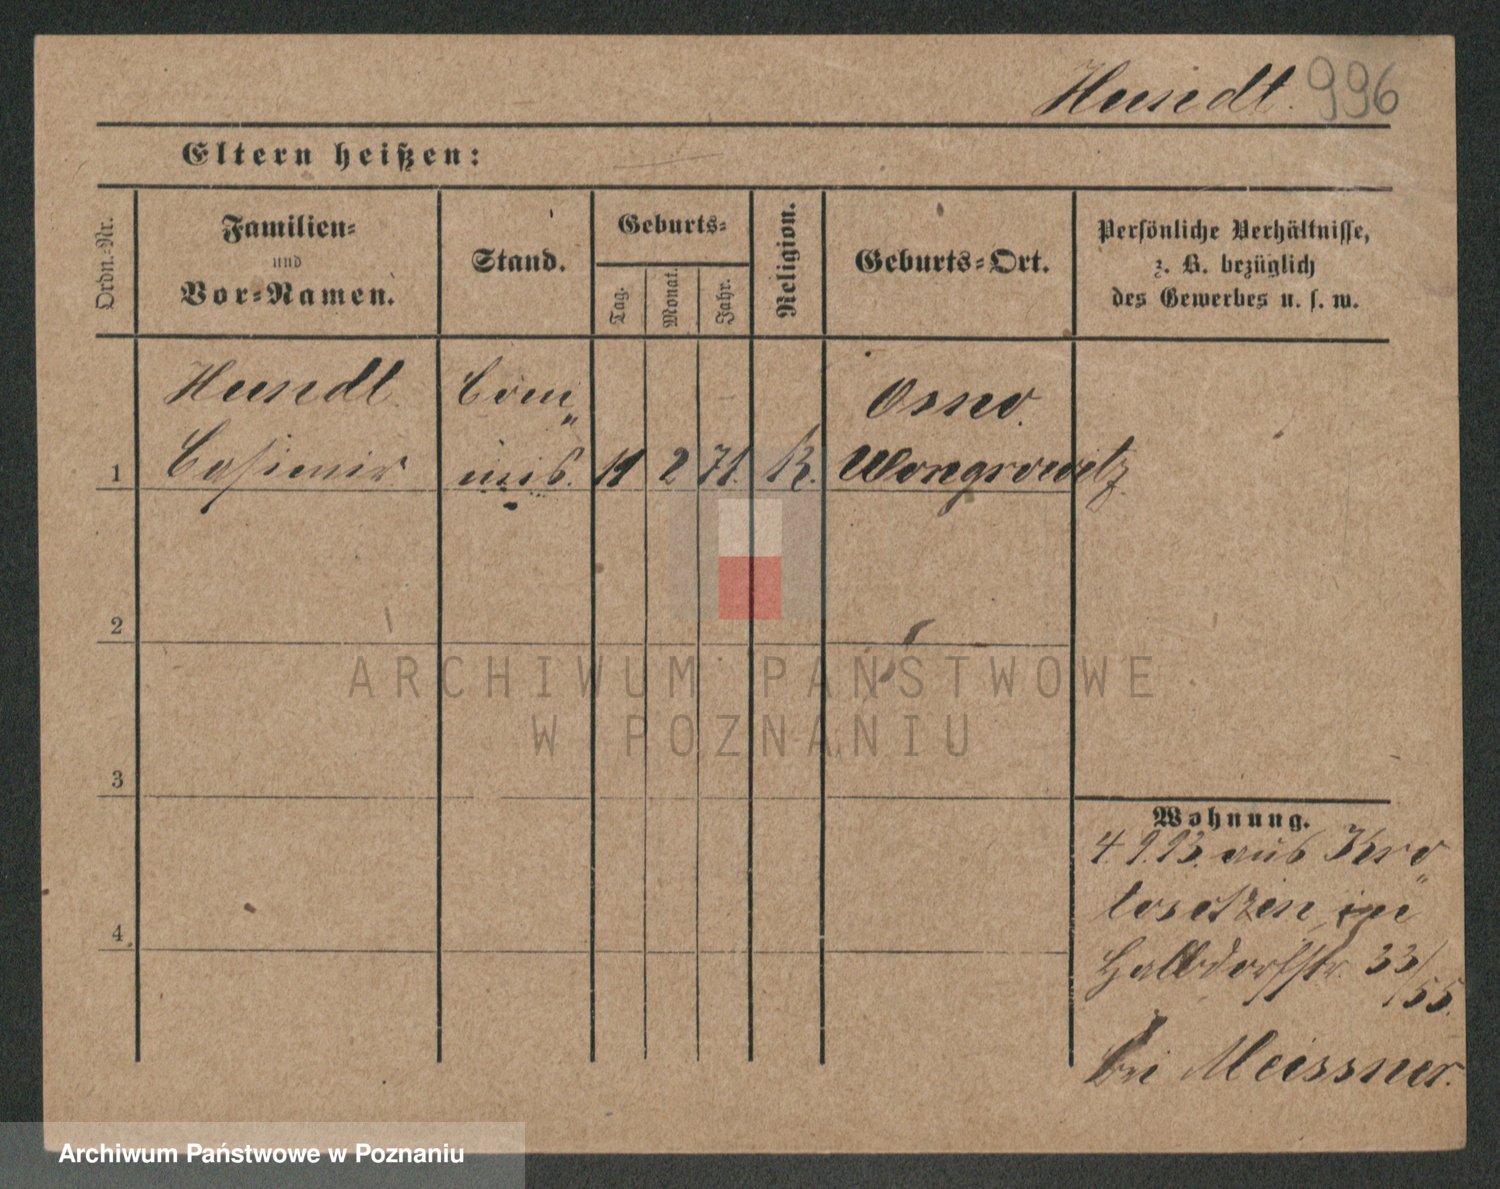 Hundt. 996
Eltern heißen:
Ordn.-Nr.
Familien-
und
Vor-Namen.
Stand.
Geburts-
Tag.
Monat.
Jahr.
Religion.
Geburts-Ort.
Persönliche Verhältnisse,
z. B. bezüglich
des Gewerbes u. s. w.
Hundt Com„ Osno.
1 Casimir mis. 19 2 71. K. Wongrowitz
2
ARCHIWUM PAŃSTWOWE
W POZNANIU
3
4
Wohnung.
4.9.93. aus Kro„
toschin in
Halbdorfstr. 33/
55.
bei Meissner.
Archiwum Państwowe w Poznaniu